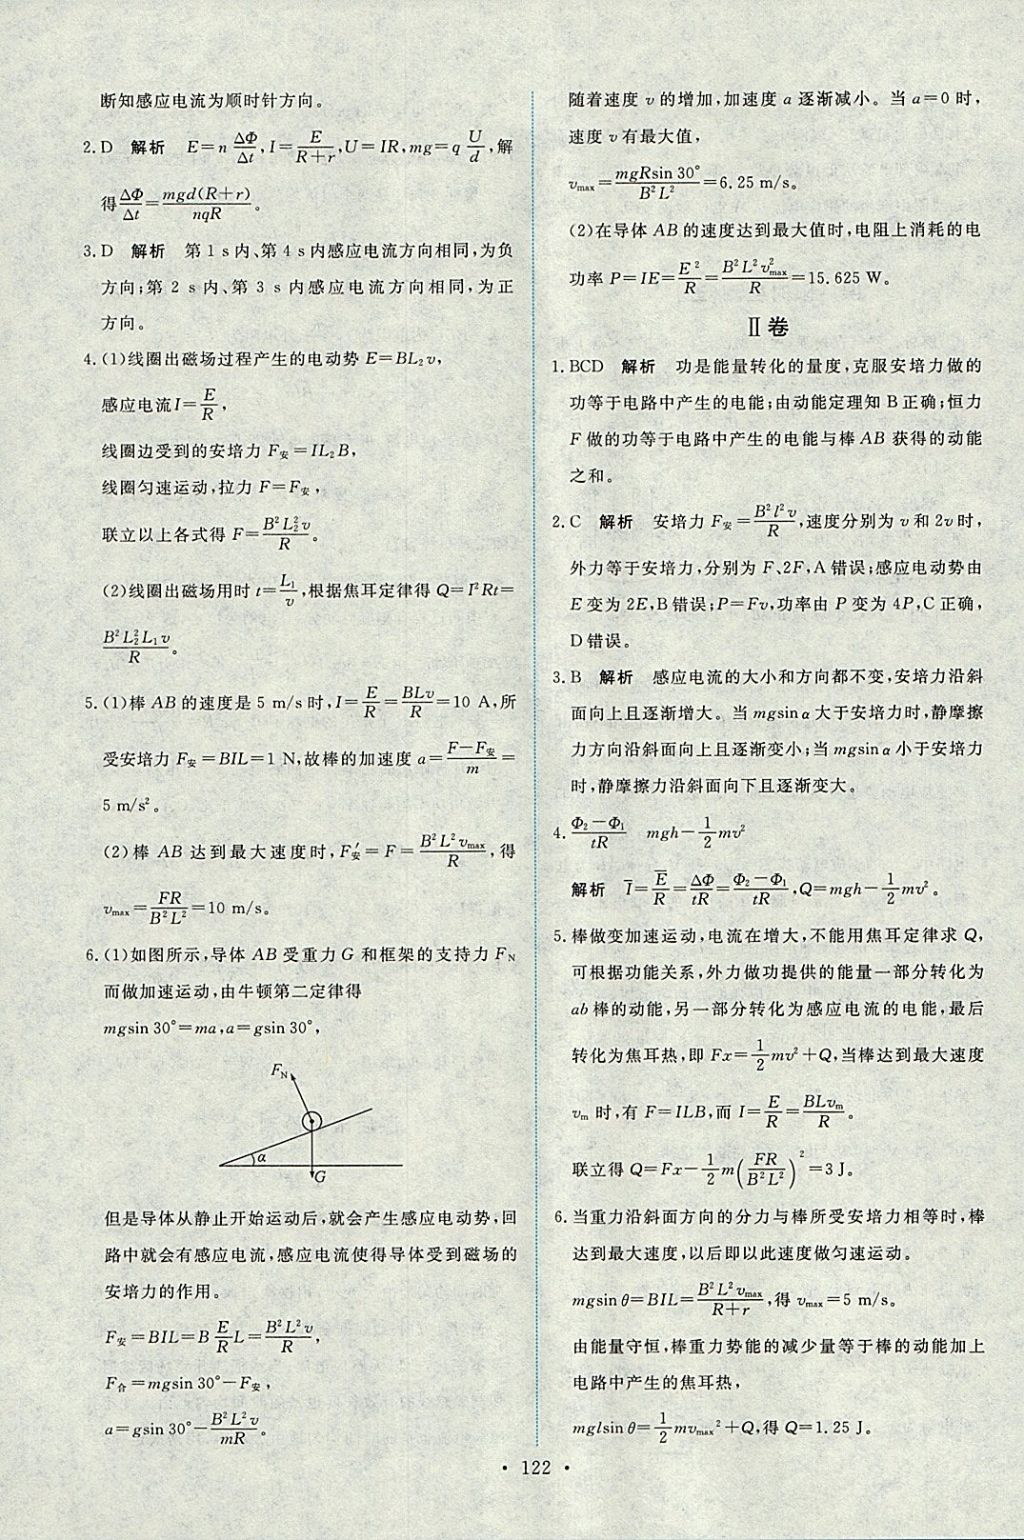 断知感应电流为顺时针方向。
2. D　解析　E=n ΔΦ/Δt, I=E/(R+r), U=IR, mg=q U/d, 解
得 ΔΦ/Δt=mgd(R+r)/nqR。
3. D　解析　第 1 s 内、第 4 s 内感应电流方向相同,为负
方向;第 2 s 内、第 3 s 内感应电流方向相同,为正
方向。
4. (1)线圈出磁场过程产生的电动势 E=BL₂v,
感应电流I=E/R,
线圈边受到的安培力 F安=IL₂B,
线圈匀速运动,拉力 F=F安,
联立以上各式得 F=B²L₂²v/R。
(2)线圈出磁场用时 t=L₁/v,根据焦耳定律得 Q=I²Rt=
B²L₂²L₁v/R。
5. (1)棒 AB 的速度是 5 m/s 时, I=E/R=BLv/R=10 A,所
受安培力 F安=BIL=1 N,故棒的加速度 a=(F-F安)/m=
5 m/s²。
(2)棒 AB 达到最大速度时, F安′=F=B²L²vmax/R,得
vmax=FR/B²L²=10 m/s。
6. (1)如图所示,导体 AB 受重力 G 和框架的支持力 FN
而做加速运动,由牛顿第二定律得
mgsin 30°=ma,a=gsin 30°,
FN
α
G
但是导体从静止开始运动后,就会产生感应电动势,回
路中就会有感应电流,感应电流使得导体受到磁场的
安培力的作用。
F安=BIL=B E/R L=B²L²v/R,
F合=mgsin 30°-F安,
a=gsin 30°-B²L²v/mR。
随着速度 v 的增加,加速度 a 逐渐减小。当 a=0 时,
速度 v 有最大值,
vmax=mgRsin 30°/B²L²=6.25 m/s。
(2)在导体 AB 的速度达到最大值时,电阻上消耗的电
功率 P=IE=E²/R=B²L²vmax²/R=15.625 W。
Ⅱ卷
1. BCD　解析　功是能量转化的量度,克服安培力做的
功等于电路中产生的电能;由动能定理知 B 正确;恒力
F 做的功等于电路中产生的电能与棒 AB 获得的动能
之和。
2. C　解析　安培力 F安=B²l²v/R,速度分别为 v 和 2v 时,
外力等于安培力,分别为 F、2F,A 错误;感应电动势由
E 变为 2E,B 错误;P=Fv,功率由 P 变为 4P,C 正确,
D 错误。
3. B　解析　感应电流的大小和方向都不变,安培力沿斜
面向上且逐渐增大。当 mgsin α 大于安培力时,静摩擦
力方向沿斜面向上且逐渐变小;当 mgsin α 小于安培力
时,静摩擦力沿斜面向下且逐渐变大。
4. (Φ₂-Φ₁)/tR　mgh-1/2 mv²
解析　I̅=E̅/R=ΔΦ/tR=(Φ₂-Φ₁)/tR,Q=mgh-1/2 mv²。
5. 棒做变加速运动,电流在增大,不能用焦耳定律求 Q,
可根据功能关系,外力做功提供的能量一部分转化为
ab 棒的动能,另一部分转化为感应电流的电能,最后
转化为焦耳热,即 Fx=1/2 mv²+Q,当棒达到最大速度
vm 时,有 F=ILB,而 I=E/R=BLvm/R。
联立得 Q=Fx-1/2 m(FR/B²L²)²=3 J。
6. 当重力沿斜面方向的分力与棒所受安培力相等时,棒
达到最大速度,以后即以此速度做匀速运动。
mgsin θ=BIL=B²L²vmax/(R+r),得 vmax=5 m/s。
由能量守恒,棒重力势能的减少量等于棒的动能加上
电路中产生的焦耳热,
mglsin θ=1/2 mvmax²+Q,得 Q=1.25 J。
• 122 •